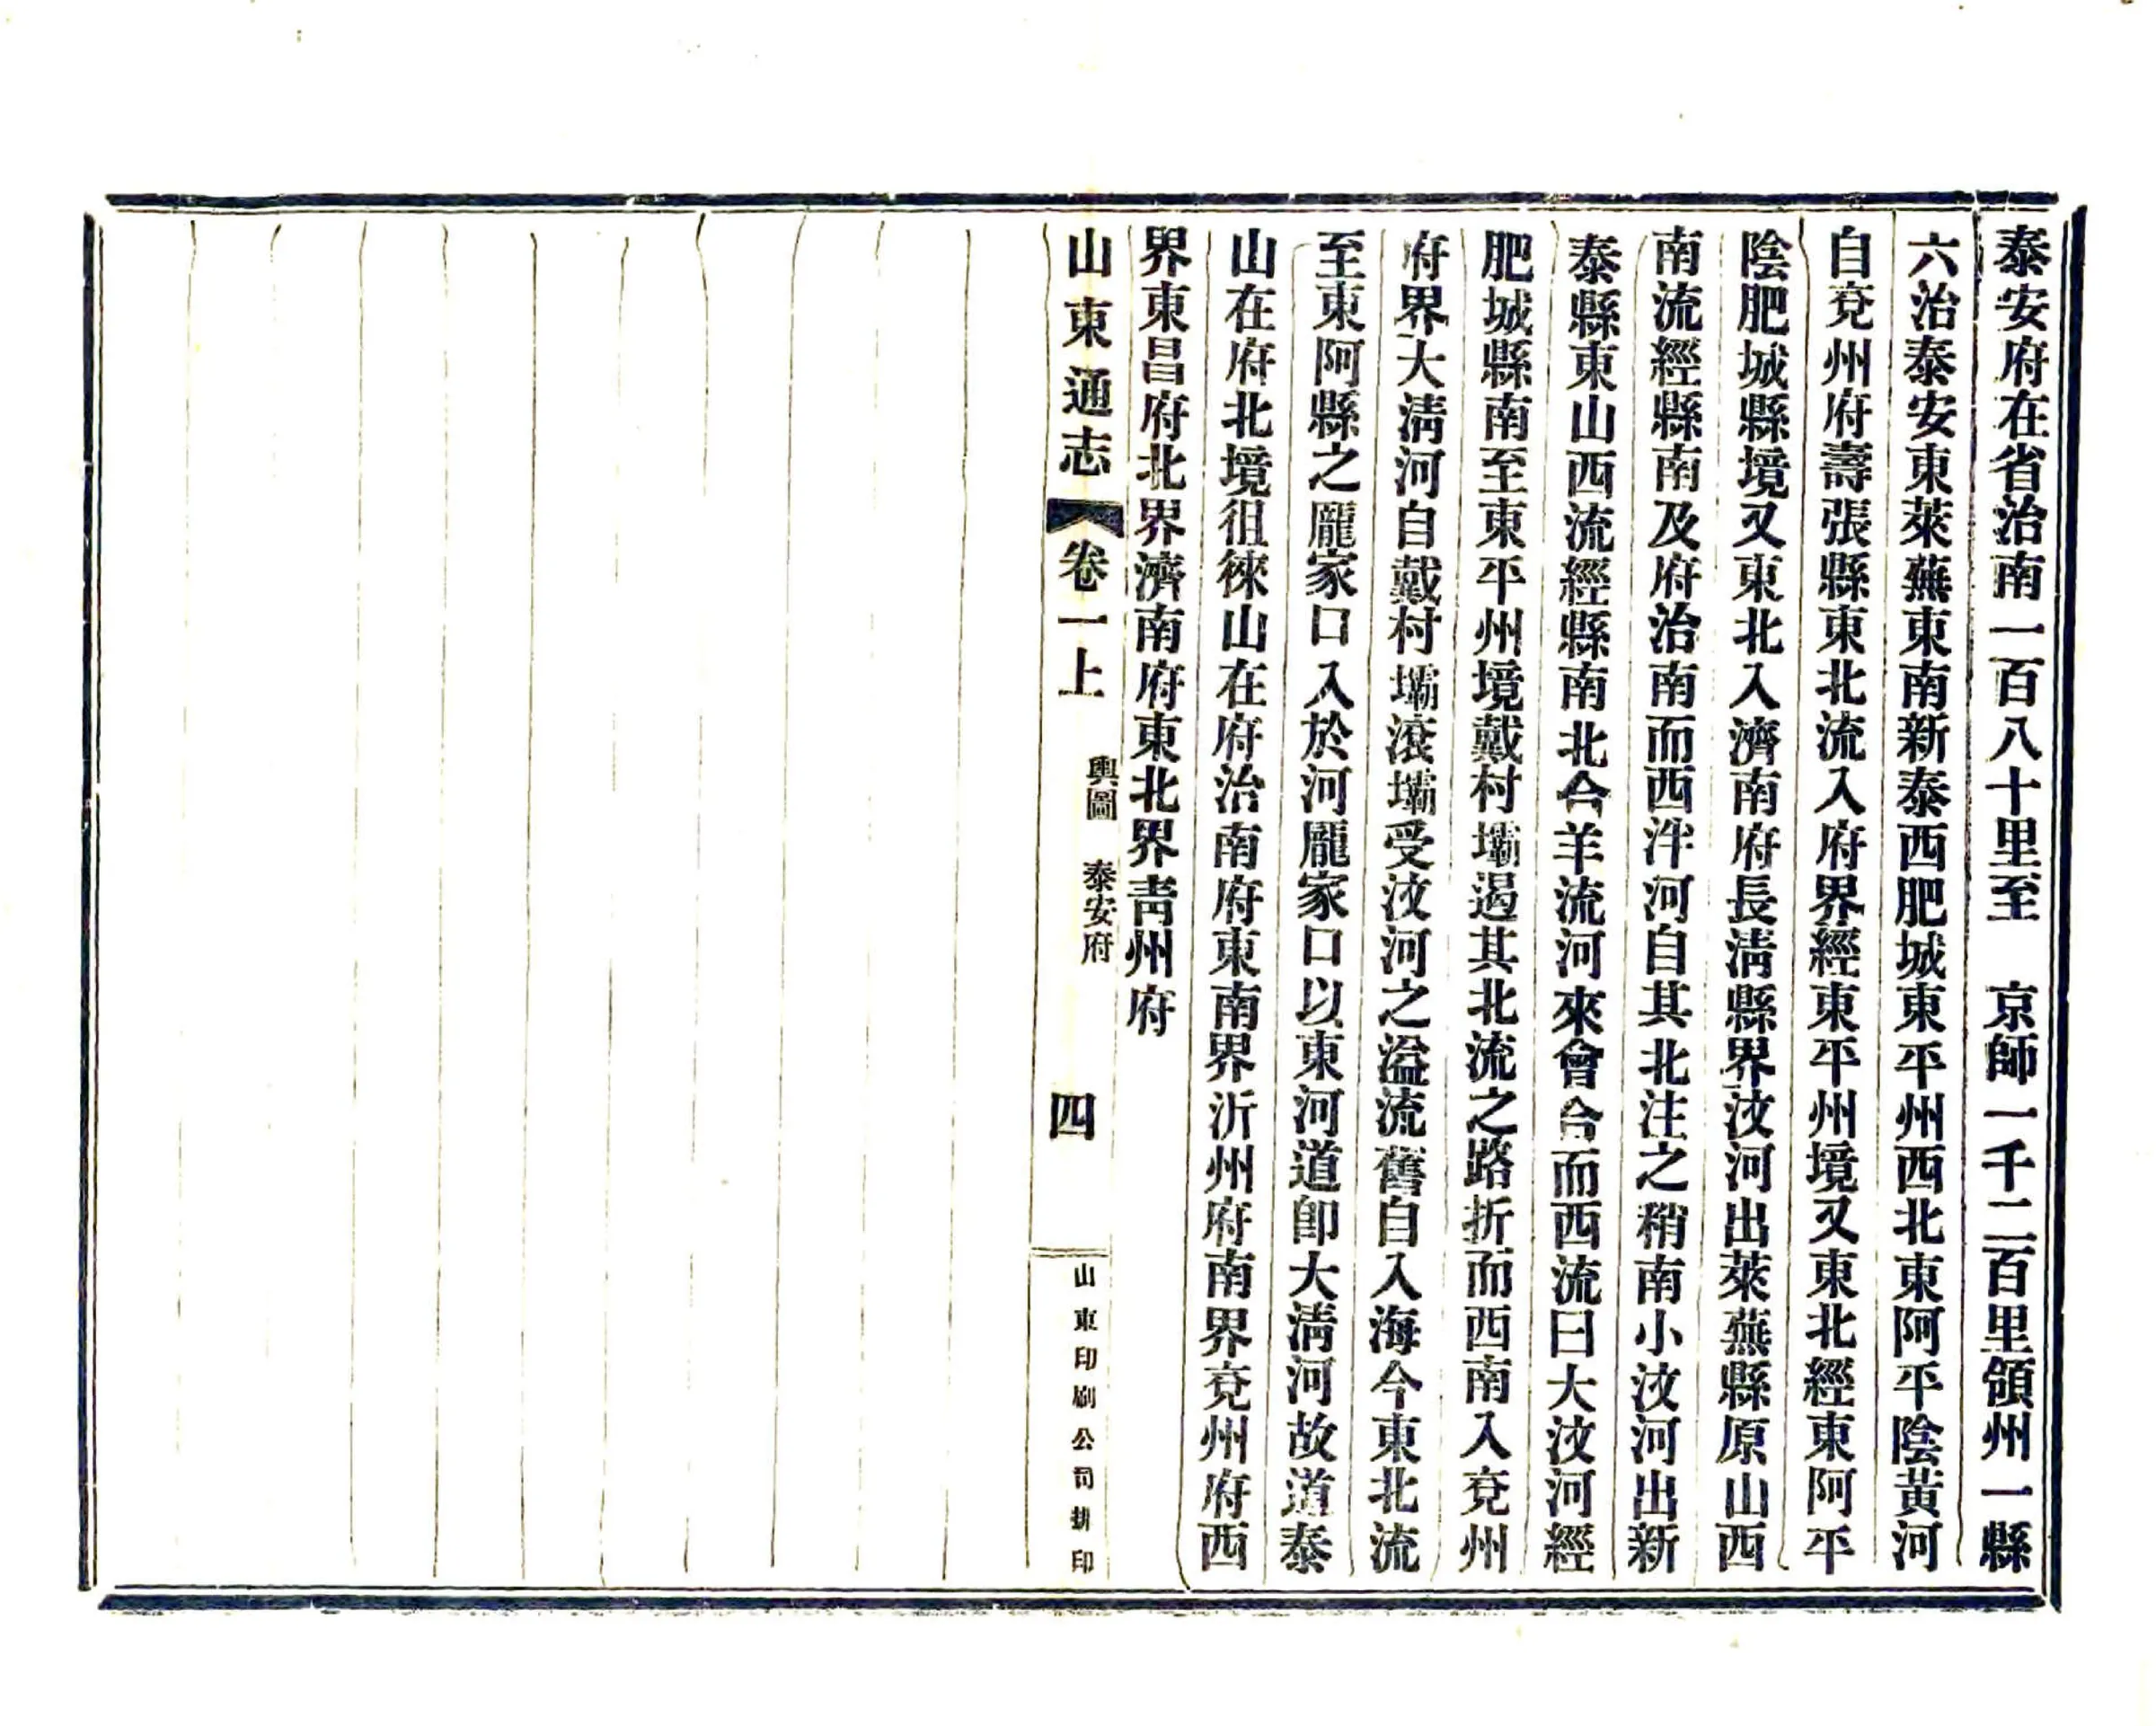 泰安府在省治南一百八十里至　京師一千二百里領州一縣
六治泰安東萊蕪東南新泰西肥城東平州西北東阿平陰黃河
自兗州府壽張縣東北流入府界經東平州境又東北經東阿平
陰肥城縣境又東北入濟南府長淸縣界汶河出萊蕪縣原山西
南流經縣南及府治南而西泮河自其北注之稍南小汶河出新
泰縣東山西流經縣南北合羊流河來會合而西流曰大汶河經
肥城縣南至東平州境戴村壩遏其北流之路折而西南入兗州
府界大淸河自戴村壩滾壩受汶河之溢流舊自入海今東北流
至東阿縣之龐家口入於河龐家口以東河道卽大淸河故道泰
山在府北境徂徠山在府治南府東南界沂州府南界兗州府西
界東昌府北界濟南府東北界靑州府
山東通志 卷一上 輿圖 泰安府 四 山東印刷公司排印